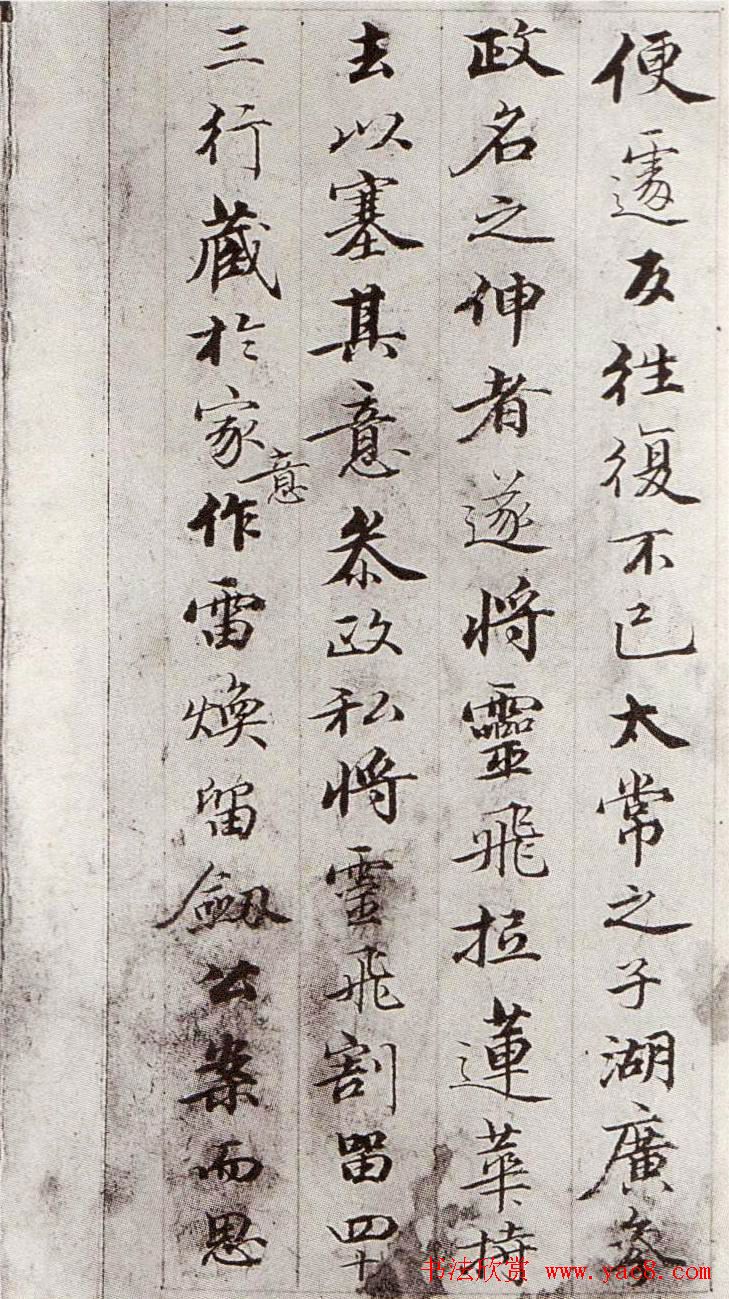 便遽反往復不已太常之子湖廣參
政名之伸者遂將靈飛蓮華持
去以塞其意叅政私將靈飛割留四十
三行藏於家意作雷煥留劒公案而思
书法欣赏 www.yac8.com